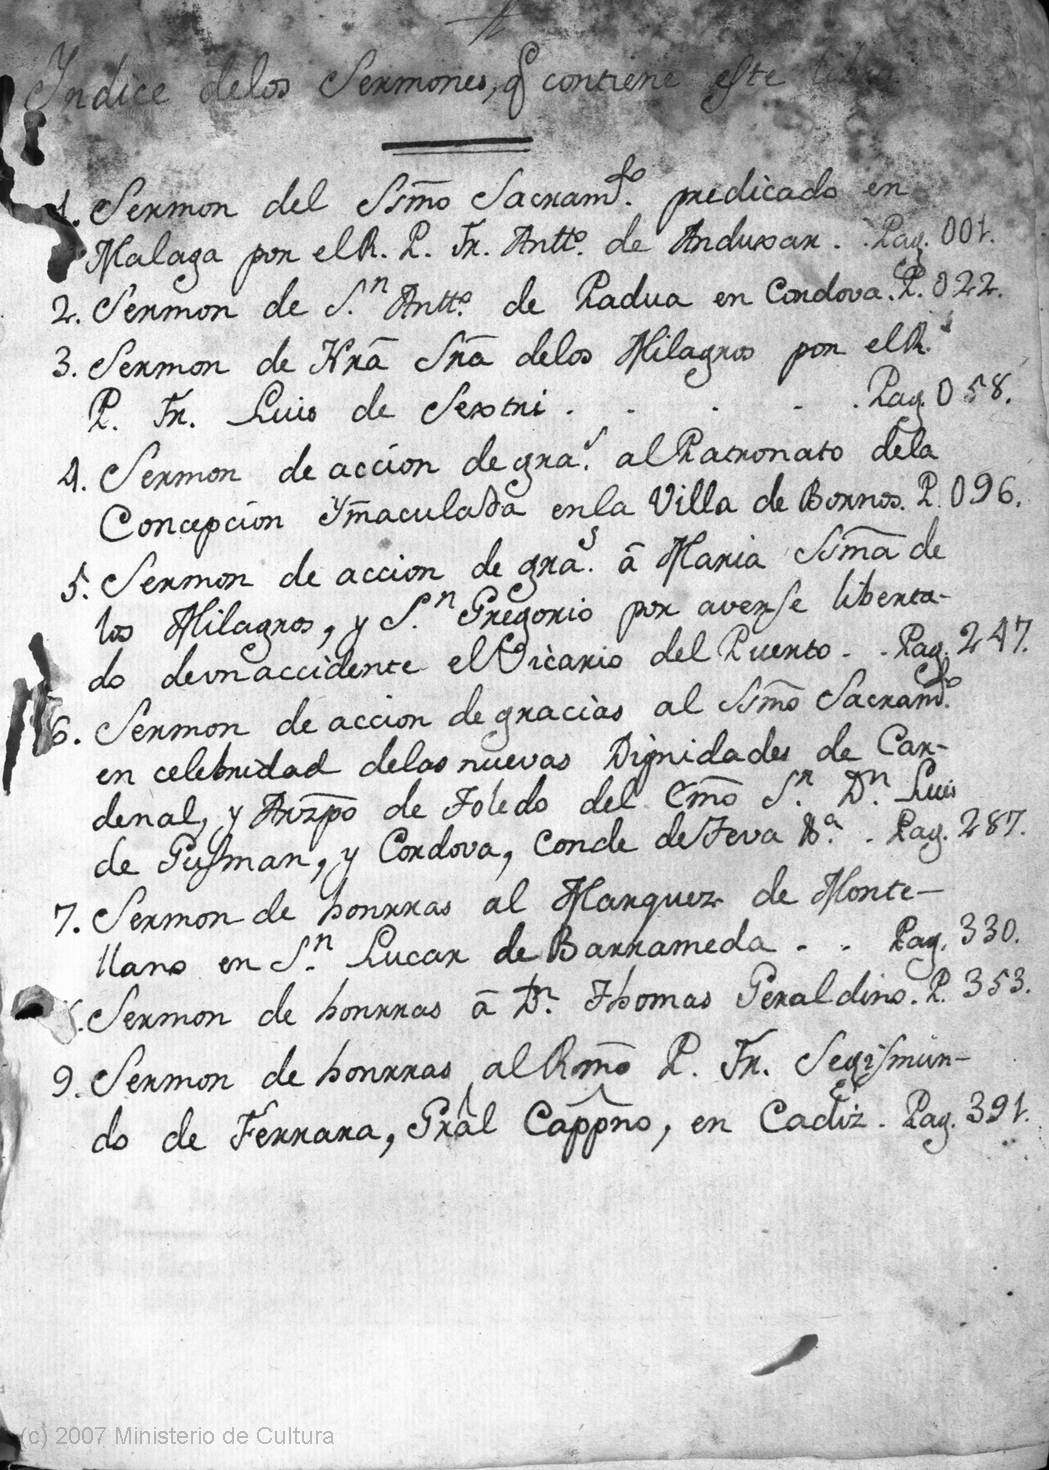 Yndice delos Sermones, q̃ contiene este libro
1. Sermon del Ssm̃o Sacramto. predicado en
Malaga por el R. P. Fr. Antto. de Anduxar. . Pag. 001.
2. Sermon de S.n Antto. de Padua en Cordova. P. 022.
3. Sermon de Nrã Srã delos Milagros por el R.
P. Fr. Luis de Sextri . . . . . Pag. 058.
4. Sermon de accion de gras. al Patronato dela
Concepcion Ym̃aculada en la Villa de Bornos. P. 096.
5. Sermon de accion de gras. â Maria Ssm̃a de
los Milagros, y S.n Gregorio por averse liberta-
do de vn accidente el Vicario del Puerto . . Pag. 247.
6. Sermon de accion de gracias al Ssm̃o Sacramto.
en celebridad delas nuevas Dignidades de Car-
denal, y Arzp̃o de Toledo del Em̃o S.n D.n Luis
de Gusman, y Cordova, Conde de Teva &a. . Pag. 287.
7. Sermon de honrras al Marquez de Monte-
llano en S.n Lucar de Barrameda . . Pag. 330.
8. Sermon de honrras â Dn. Thomas Geraldino. P. 353.
9. Sermon de honrras al Rm̃o P. Fr. Segismun-
do de Ferrara, Grãl Capp̃no, en Cadiz. Pag. 391.
(c) 2007 Ministerio de Cultura